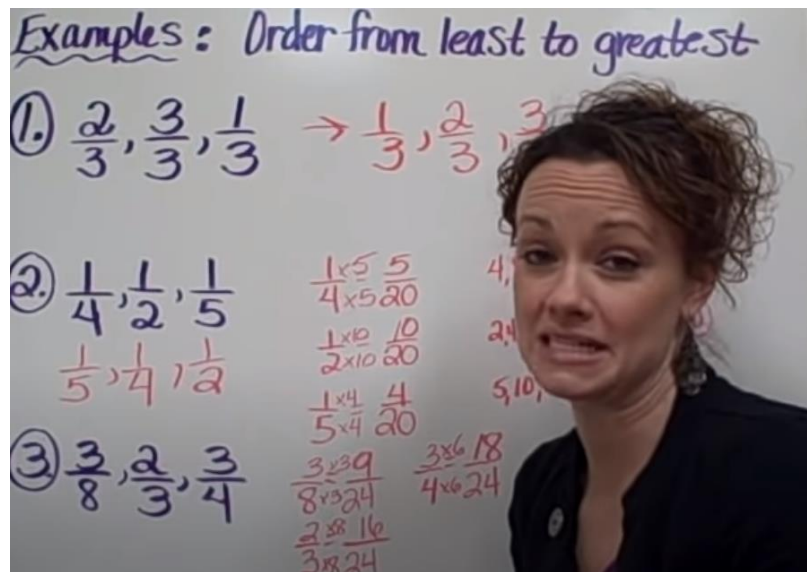 Examples: Order from least to greatest
1. 2/3, 3/3, 1/3 → 1/3, 2/3, 3
2. 1/4, 1/2, 1/5
1/5, 1/4, 1/2
1×5/4×5 = 5/20 4,
1×10/2×10 = 10/20 2,4
1×4/5×4 = 4/20 5,10,
3. 3/8, 2/3, 3/4
3×3/8×3 = 9/24 3×6/4×6 = 18/24
2×8/3×8 = 16/24